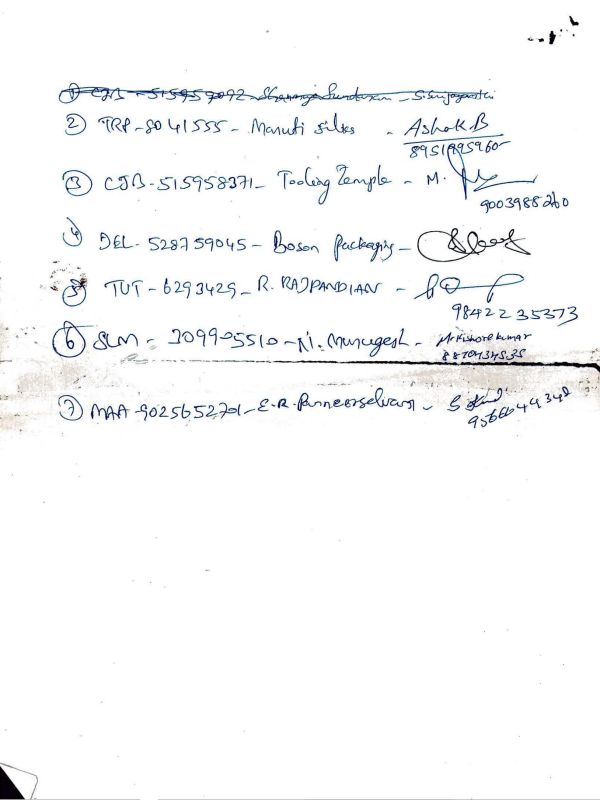 ① CJB - 515957092
② TRP - 8041555 - Maruti silks - Ashok.B
8951995960
③ CJB - 515958371 - Tooling Temple - M.
9003988260
④ DEL - 528759045 - Boson Packaging -
⑤ TUT - 6293429 - R. RAJPANDIAN -
98422 35373
⑥ SLM - 309905510 - N. Murugesh - M. Kishore kumar
⑦ MAA - 902565270 - E.R. Panneerselvam - S